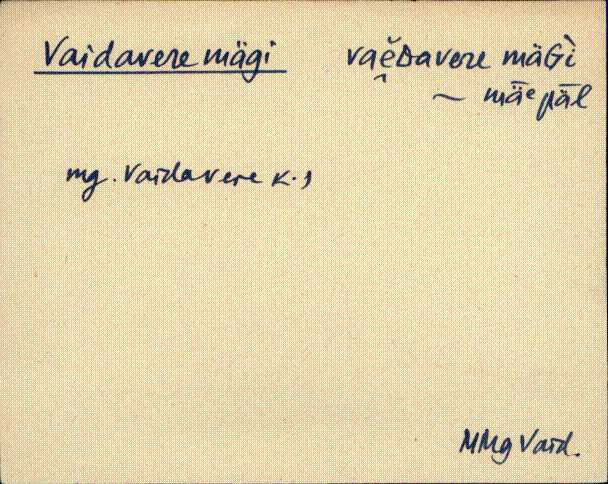 Vaidavere mägi vaĕ̯Davere mäGì
~ mǟᵉ pǟl
mg. Vaidavere k.,
MMg Vaid.